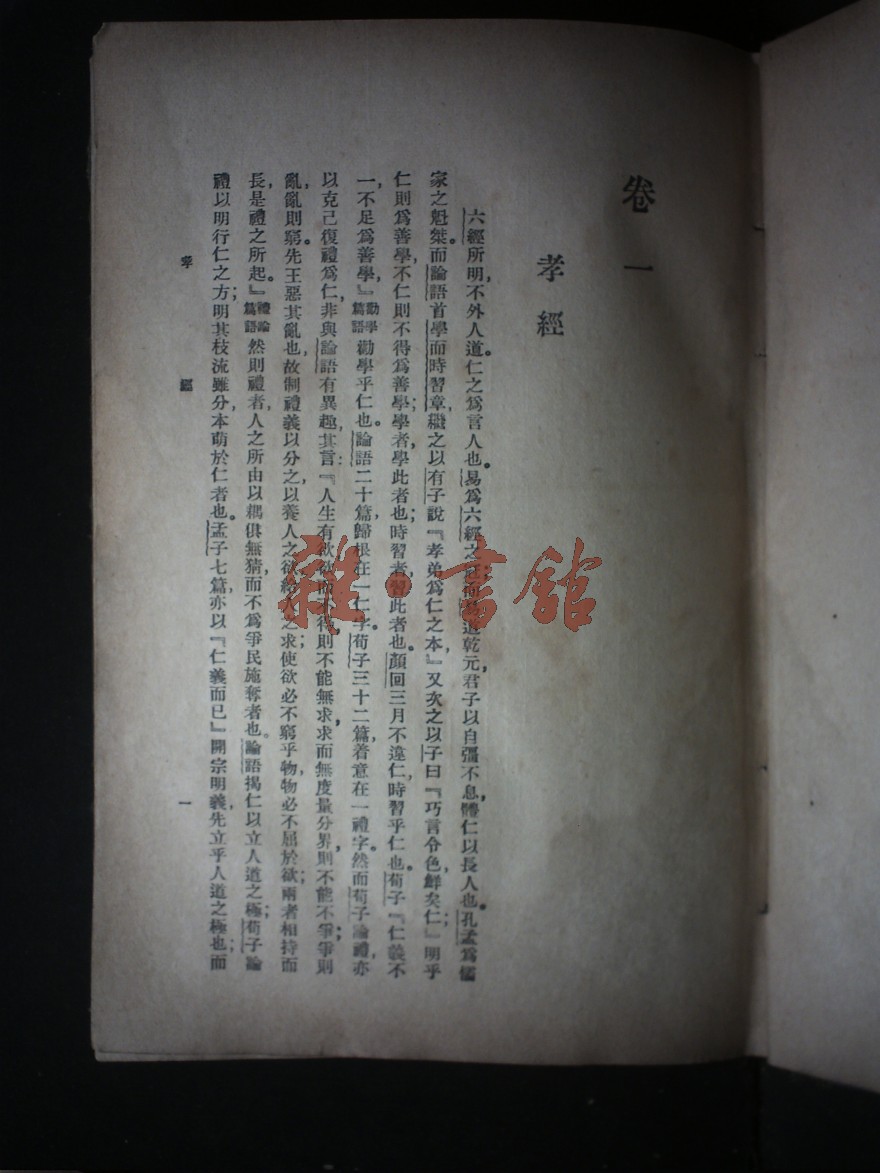 卷一
孝經
六經所明，不外人道。仁之爲言人也。易爲六經之冠，而易道乾元，君子以自彊不息，體仁以長人也。孔孟爲儒
家之魁桀。而論語首學而時習章，繼之以有子說『孝弟爲仁之本』又次之以子曰『巧言令色鮮矣仁』明乎
仁則爲善學，不仁則不得爲善學；學者學此者也；時習者，習此者也。顏回三月不違仁，時習乎仁也。荀子『仁義不
一，不足爲善學，』勸學篇語勸學乎仁也。論語二十篇，歸根在一仁字。荀子三十二篇，着意在一禮字。然而荀子論禮，亦
以克己復禮爲仁，非與論語有異趣，其言：『人生有欲，欲而不得，則不能無求，求而無度量分界，則不能不爭；爭則
亂，亂則窮。先王惡其亂也，故制禮義以分之，以養人之欲，給人之求，使欲必不窮乎物，物必不屈於欲，兩者相持而
長，是禮之所起。』禮論篇語然則禮者，人之所由以耦俱無猜，而不爲爭民施奪者也。論語揭仁以立人道之極；荀子論
禮以明行仁之方；明其枝流雖分，本萌於仁者也。孟子七篇，亦以『仁義而已』開宗明義，先立乎人道之極也；而
孝 經 一
雜·書館